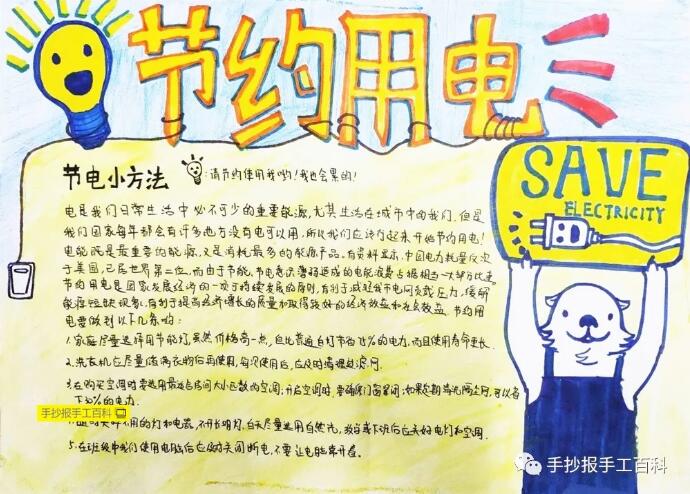 节约用电
节电小方法
:请节约使用我哟!我也会累的!
SAVE
ELECTRICITY
电是我们日常生活中必不可少的重要能源,尤其生活在城市中的我们.但是
我们国家每年都会有许多地方没有电可以用,所以我们应该行起来开始节约用电!
电能既是最重要的能源,又是消耗最多的能源产品.有资料显示,中国电力耗量仅次
于美国,已居世界第二位,而由于节能、节电意识薄弱造成的电能浪费占据相当一大部分比重.
节约用电是国家发展经济的一项于持续发展的原则,有利于减轻城市电网负载压力,缓解
能源短缺现象,有利于提高经济增长的质量和取得较好的经济效益和社会效益.节约用
电要做到以下几条哟:
1.家庭尽量选择用节能灯,虽然价格高一点,但比普通白灯节省75%的电力,而且使用寿命更长.
2.洗衣机应尽量放满衣物后再使用,每次使用后,应及时清理过滤网.
3.在购买空调时要选用最适合房间大小匹数的空调;开启空调时,要确保门窗紧闭;如果定期清洗隔尘网,可以省
下30%的电力.
不用的灯和电器,不开长明灯,白天尽量选用自然光,放学或下班后应关好电灯和空调.
5.在班级中我们使用电脑后应及时关闭断电,不要让电脑常开着.
手抄报手工百科
手抄报手工百科